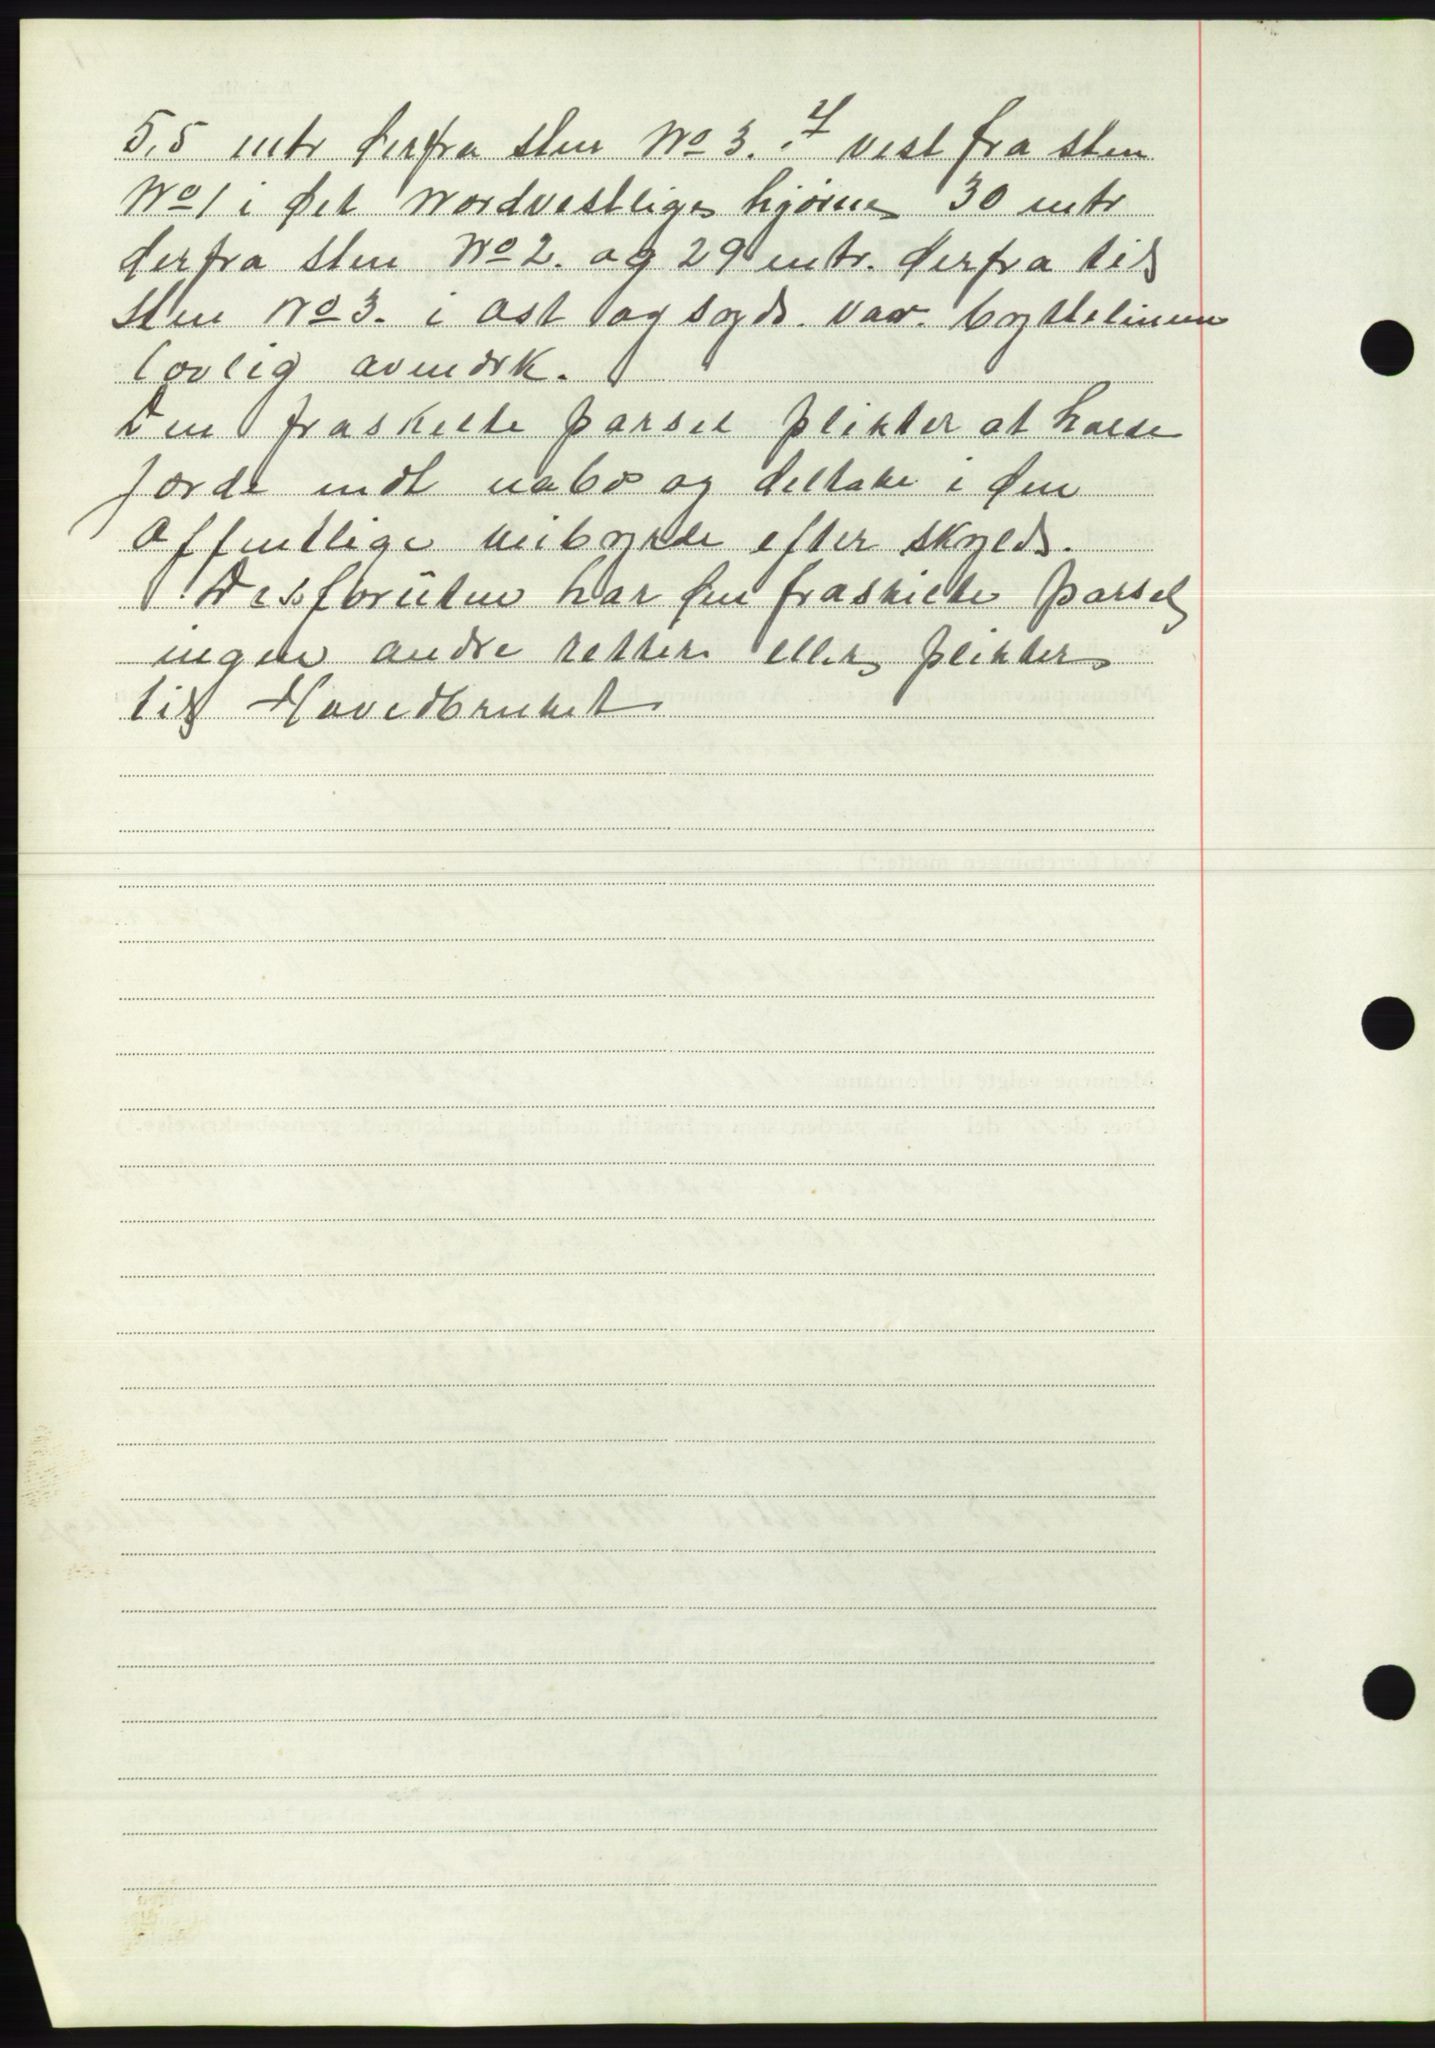 5,5 mtr derfra sten No 3. I vest fra sten
No 1 i det Nordvestlige hjørne 30 mtr
derfra sten No 2. og 29 mtr. derfra til
sten No 3. i øst og syd. var byttelinien
lovlig avmerk.
Den fraskilte parsel plikter at holde
jorde mot nabo og deltake i den
offentlige veibyrde efter skyld.
Desforuten har den fraskilte parsel
ingen andre retter eller plikter
til Hovedbruket